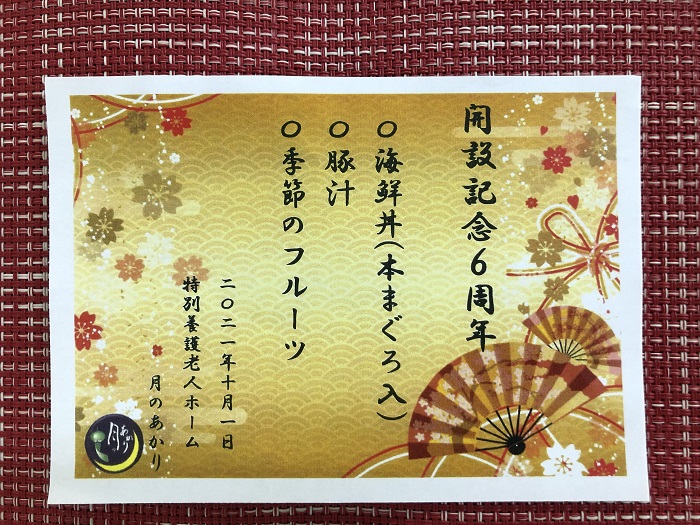 開設記念6周年
○海鮮丼(本まぐろ入)
○豚汁
○季節のフルーツ
二〇二一年十月一日
特別養護老人ホーム
月のあかり
月
あかり